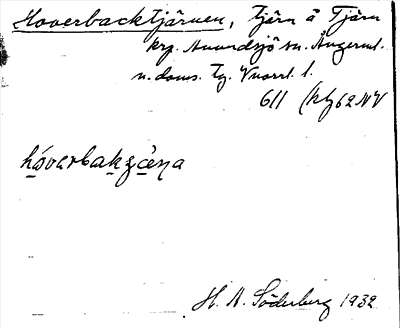 Hoverbacktjärnen, tjärn å Tjärn
krj. Anundsjö sn. Ångerml.
n. doms. Tg. Vnorrl. l.
611 (kbl 62 NV
hóverbakzčena
H. N. Söderberg 1932